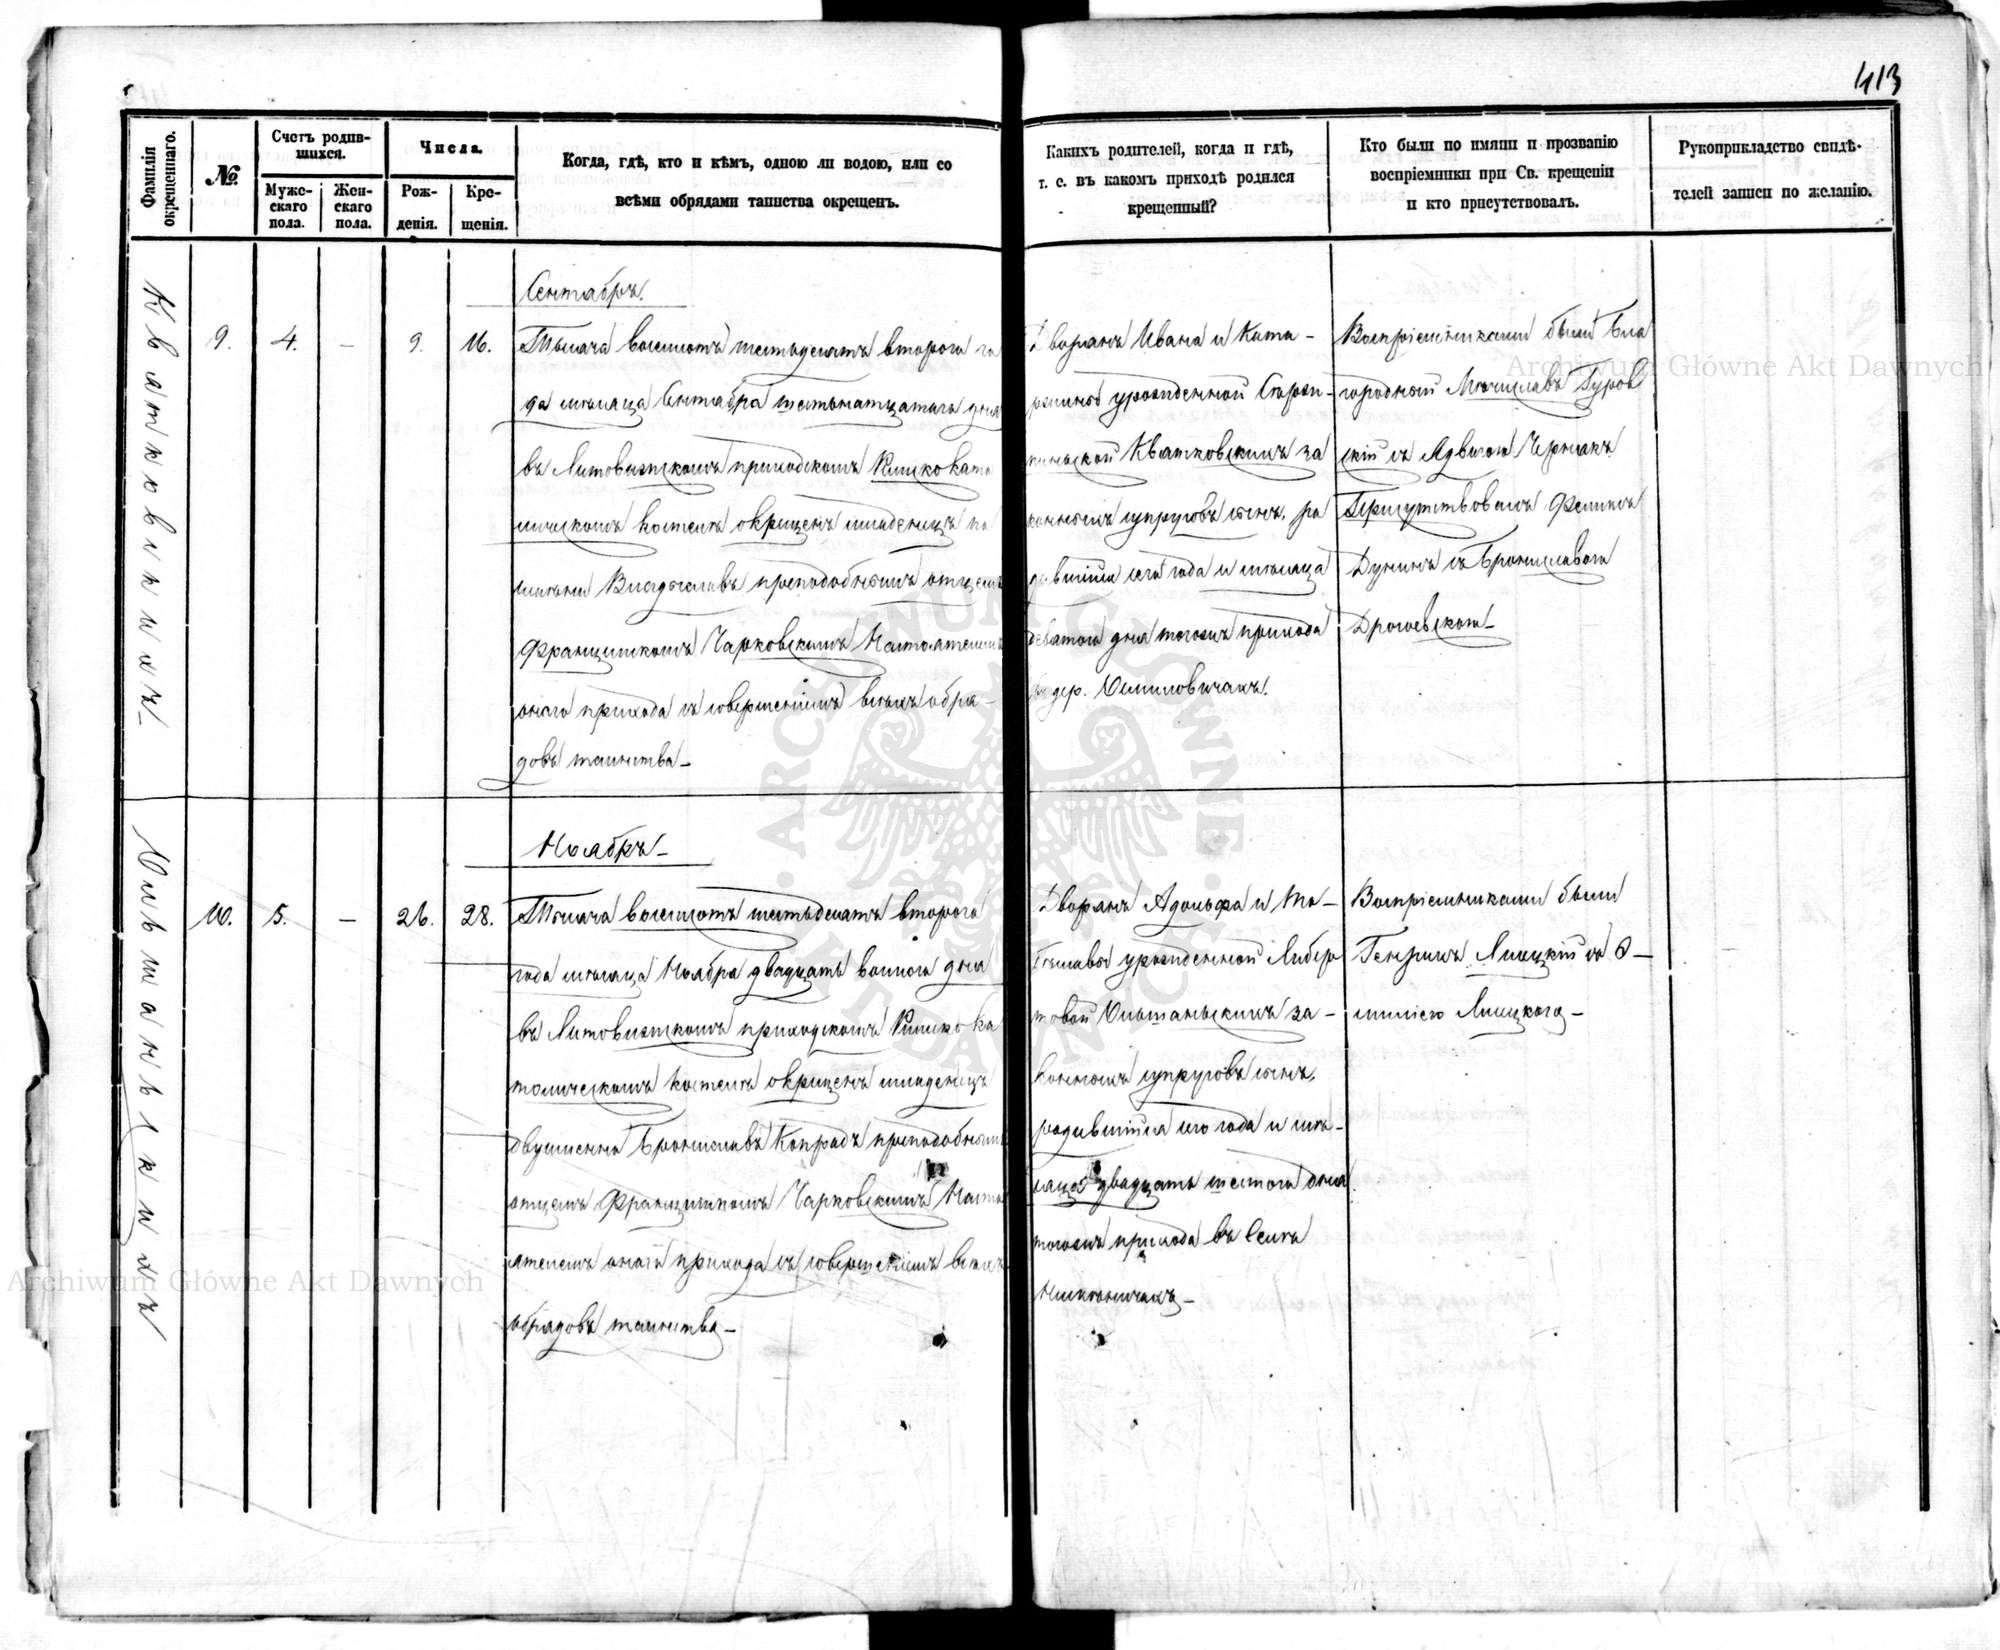 413
Фамилія окрещеннаго.
№
Счетъ родив-
шихся.
Муже-
скаго
пола.
Жен-
скаго
пола.
Числа.
Рож-
денія.
Кре-
щенія.
Когда, гдѣ, кто и кѣмъ, одною ли водою, или со
всѣми обрядами таинства окрещенъ.
Какихъ родителей, когда и гдѣ,
т. е. въ какомъ приходѣ родился
крещенный?
Кто были по имяни и прозванію
воспріемники при Св. крещеніи
и кто присутствовалъ.
Рукоприкладство свидѣ-
телей записи по желанію.
9.
4.
—
9.
16.
Сентабрь.
Тысяча восемьсотъ шестьдесятъ второго го
да мѣсяца Сентабра шестьнатцатаго дня
въ Литовижскомъ приходскомъ Римско като
лическомъ костелѣ окрещенъ младенецъ по
имени Владыславъ преподобнымъ отцемъ
Францишкомъ Чарковскимъ Настоятелемъ
онаго прихода съ совершеніемъ всѣхъ обря-
довъ таинства—
Дворянъ Ивана и Ката-
урожденной
Квятковскихъ за
конныхъ супруговъ сынъ, ро
дившійся сего года и мѣсяца
девятого дня тогожъ прихода
въ дер.
Воспріемниками были Бла
городный Мечиславъ Гуров
скій съ Ядвигою Чернякъ
Присутствовалъ Феликсъ
Дунинъ съ Брониславою
10.
5.
—
26.
28.
Ноябрь—
Тысяча восемьсотъ шестьдесятъ второго
года мѣсяца Ноябра двадцать восмого дня
въ Литовижскомъ приходскомъ Римско ка
толическомъ костелѣ окрещенъ младенецъ
двуименно Брониславъ Конрадъ преподобнымъ
отцемъ Францишкомъ Чарковскимъ Насто
ятелемъ онаго прихода съ совершеніемъ всѣхъ
обрядовъ таинства—
Дворянъ Адольфа и
урожденной
Ольшаньскихъ за-
конныхъ супруговъ сынъ,
родившійся сего года и мѣ-
сяца двадцать шестого дня
тогожъ прихода въ Селѣ
Воспріемниками были
Генрихъ Лисецкій съ Э-
миліею
Archiwum Główne Akt Dawnych
Archiwum Główne Akt Dawnych
ARCHIWUM GŁÓWNE AKT DAWNYCH